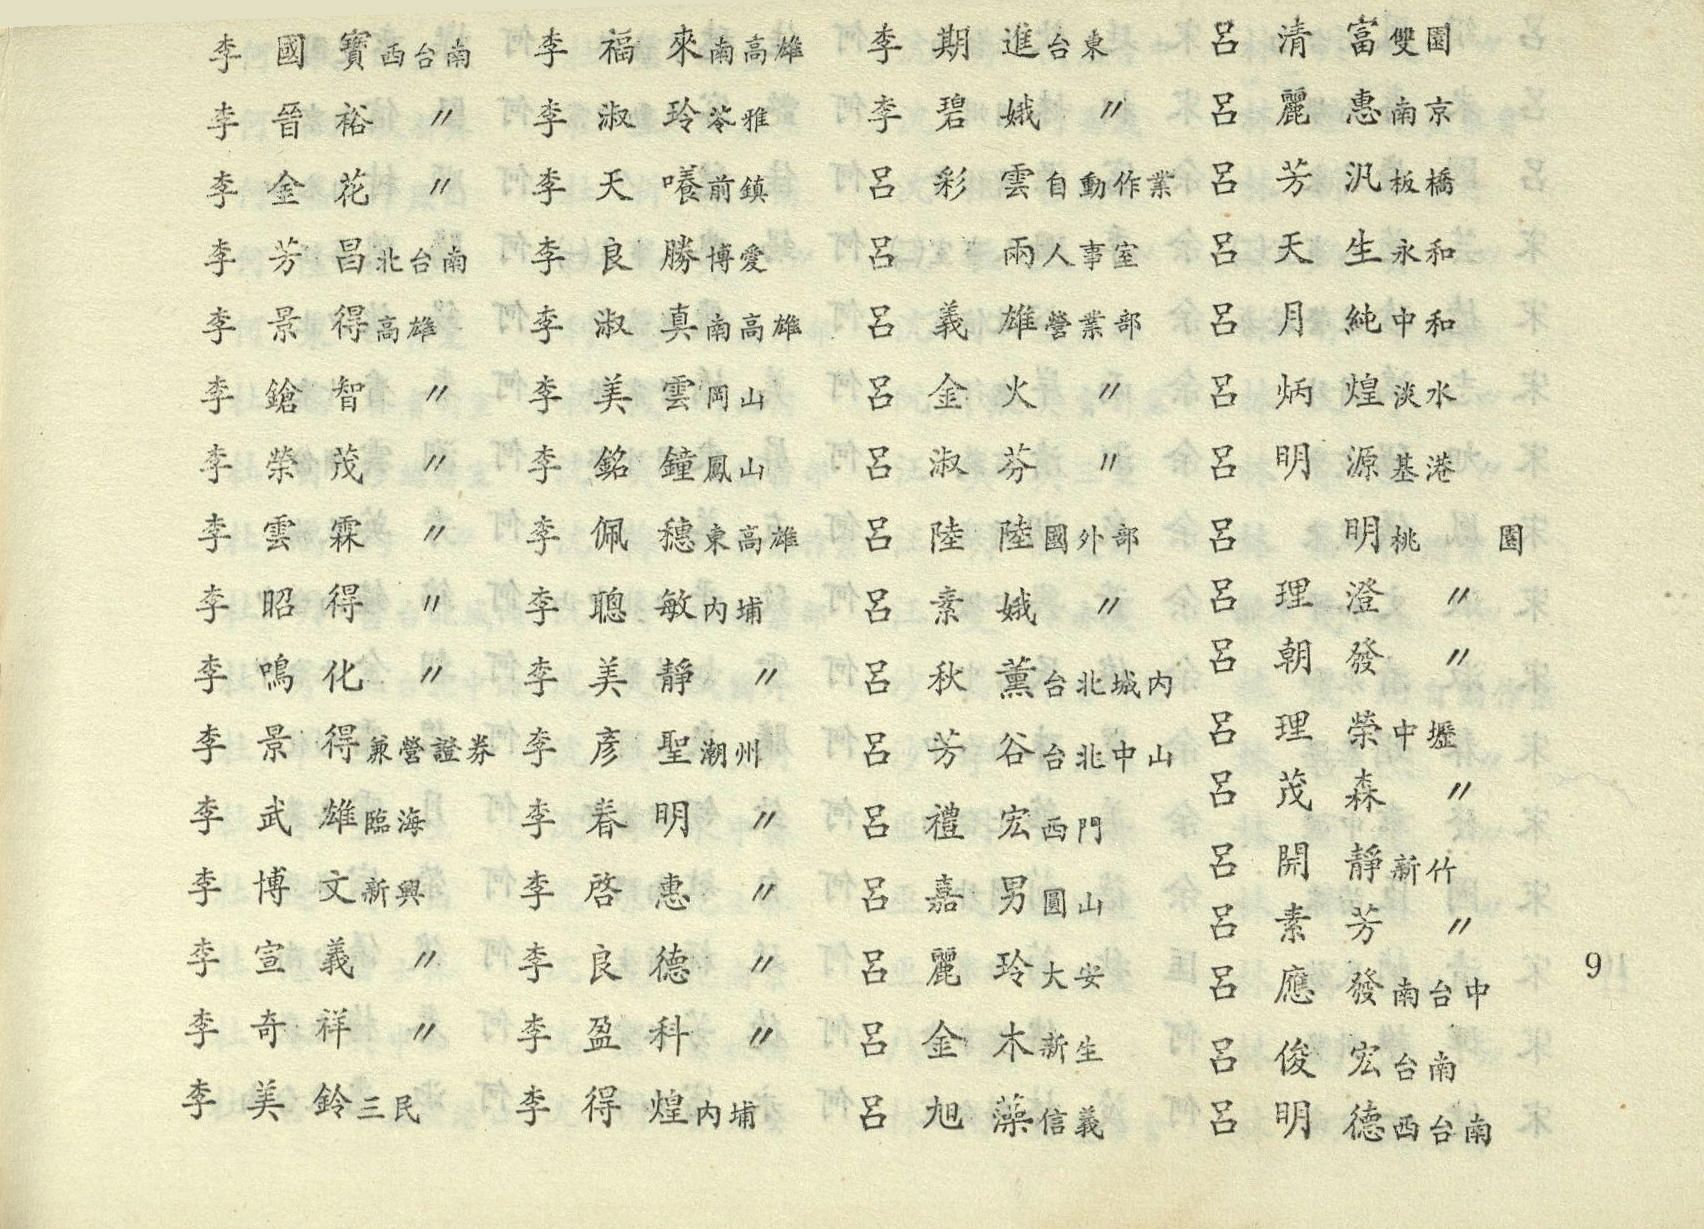 李國寶西台南
李晉裕〃
李金花〃
李芳昌北台南
李景得高雄
李鎗智〃
李榮茂〃
李雲霖〃
李昭得〃
李鳴化〃
李景得兼營證券
李武雄臨海
李博文新興
李宣義〃
李奇祥〃
李美鈴三民
李福來南高雄
李淑玲苓雅
李天㬢前鎮
李良勝博愛
李淑真南高雄
李美雲岡山
李銘鐘鳳山
李佩穗東高雄
李聰敏內埔
李美靜〃
李彥聖潮州
李春明〃
李啓惠〃
李良德〃
李盈科〃
李得煌內埔
李期進台東
李碧娥〃
呂彩雲自動作業
呂雨人事室
呂義雄營業部
呂金火〃
呂淑芬〃
呂陸陸國外部
呂素娥〃
呂秋薰台北城內
呂芳谷台北中山
呂禮宏西門
呂嘉男圓山
呂麗玲大安
呂金木新生
呂旭藻信義
呂清富雙園
呂麗惠南京
呂芳汎板橋
呂天生永和
呂月純中和
呂炳煌淡水
呂明源基港
呂明桃園
呂理澄〃
呂朝發〃
呂理榮中壢
呂茂森〃
呂開靜新竹
呂素芳〃
呂應發南台中
呂俊宏台南
呂明德西台南
9